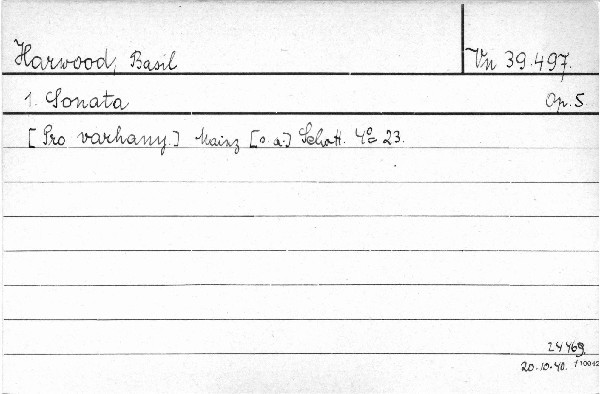 Harwood, Basil Vn 39.497.
1. Sonata Op. 5
[Pro varhany.] Mainz [o. a.] Schott. 4º = 23.
24469.
20.10.40. f 10042